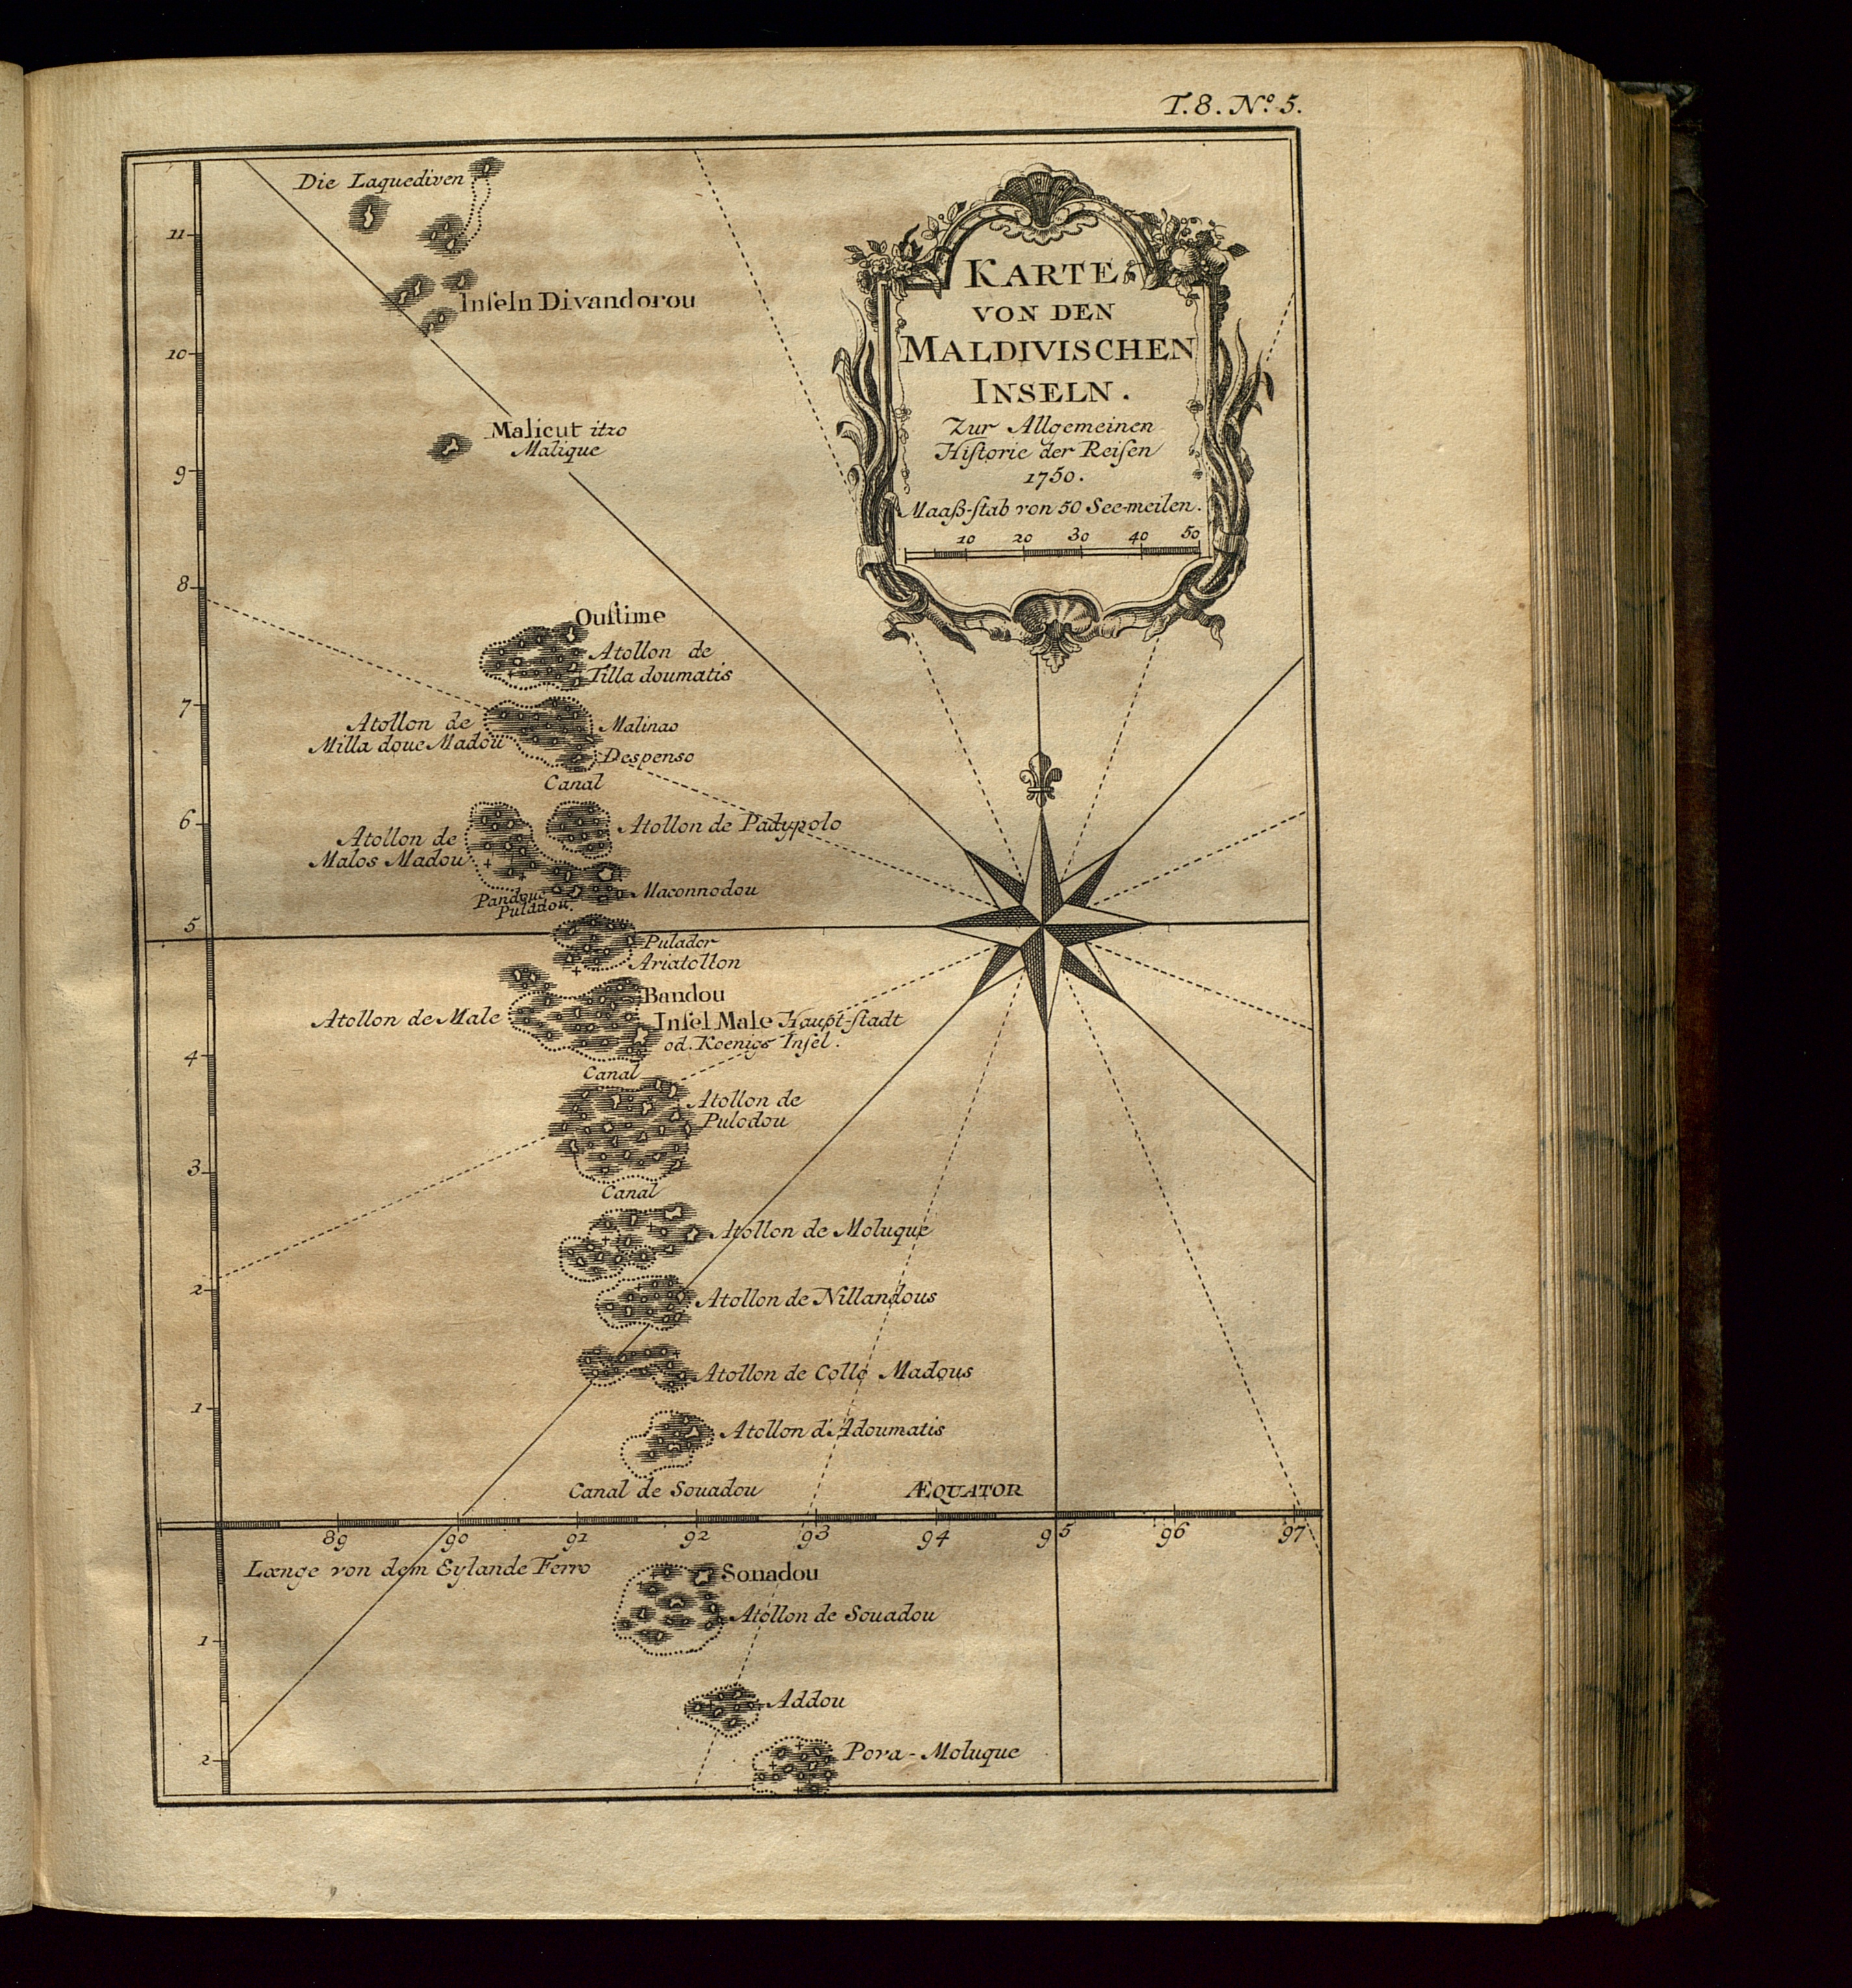 T.8. Nº 5.
KARTE
VON DEN
MALDIVISCHEN
INSELN.
Zur Allgemeinen
Hiſtorie der Reiſen
1750.
Maaß-ſtab von 50 See-meilen.
10 20 30 40 50
Die Laquediven
11
Inſeln Divandorou
10
Malicut itzo
Malique
9
8
Ouſtime
Atollon de
Tilla doumatis
7
Atollon de
Milla doue Madou
Malinao
Despenso
Canal
6
Atollon de Padypolo
Atollon de
Malos Madou
Maconnodou
Pandoue
Puladou.
5
Pulador
Ariatollon
Bandou
Atollon de Male
Inſel Male Haupt-ſtadt
od. Koenigs Inſel.
4
Canal
Atollon de
Pulodou
3
Canal
Atollon de Moluque
2
Atollon de Nillandous
Atollon de Collo Madous
1
Atollon d'Adoumatis
Canal de Souadou
ÆQUATOR
89 90 91 92 93 94 95 96 97
Længe von dem Eylande Ferro
Souadou
Atollon de Souadou
1
Addou
2
Pova-Moluque